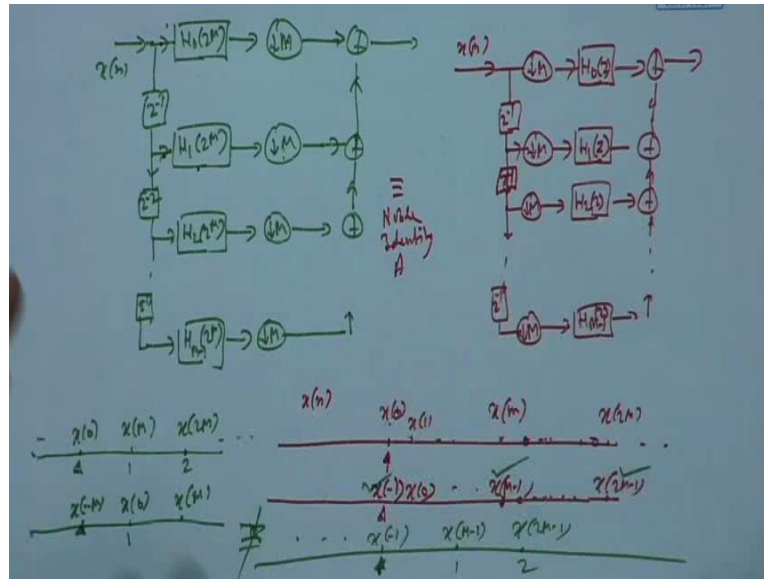 x(n) H₀(z^M) ↓M +
z⁻¹
H₁(z^M) ↓M +
z⁻²
H₂(z^M) ↓M +
z⁻¹
H_{M-1}(z^M) ↓M
≡
Noble
Identity
A
x(n) ↓M H₀(z) +
z⁻¹
↓M H₁(z) +
z⁻¹
↓M H₂(z) +
z⁻¹
↓M H_{M-1}(z)
x(n)
x(0) x(M) x(2M) ...
1 2
x(0) x(1) x(M) x(2M) ...
x(-M) x(0) x(M)
1
x(-1) x(0) ... x(M-1) x(2M-1)
≢ .... x(-1) x(M-1) x(2M-1)
1 2